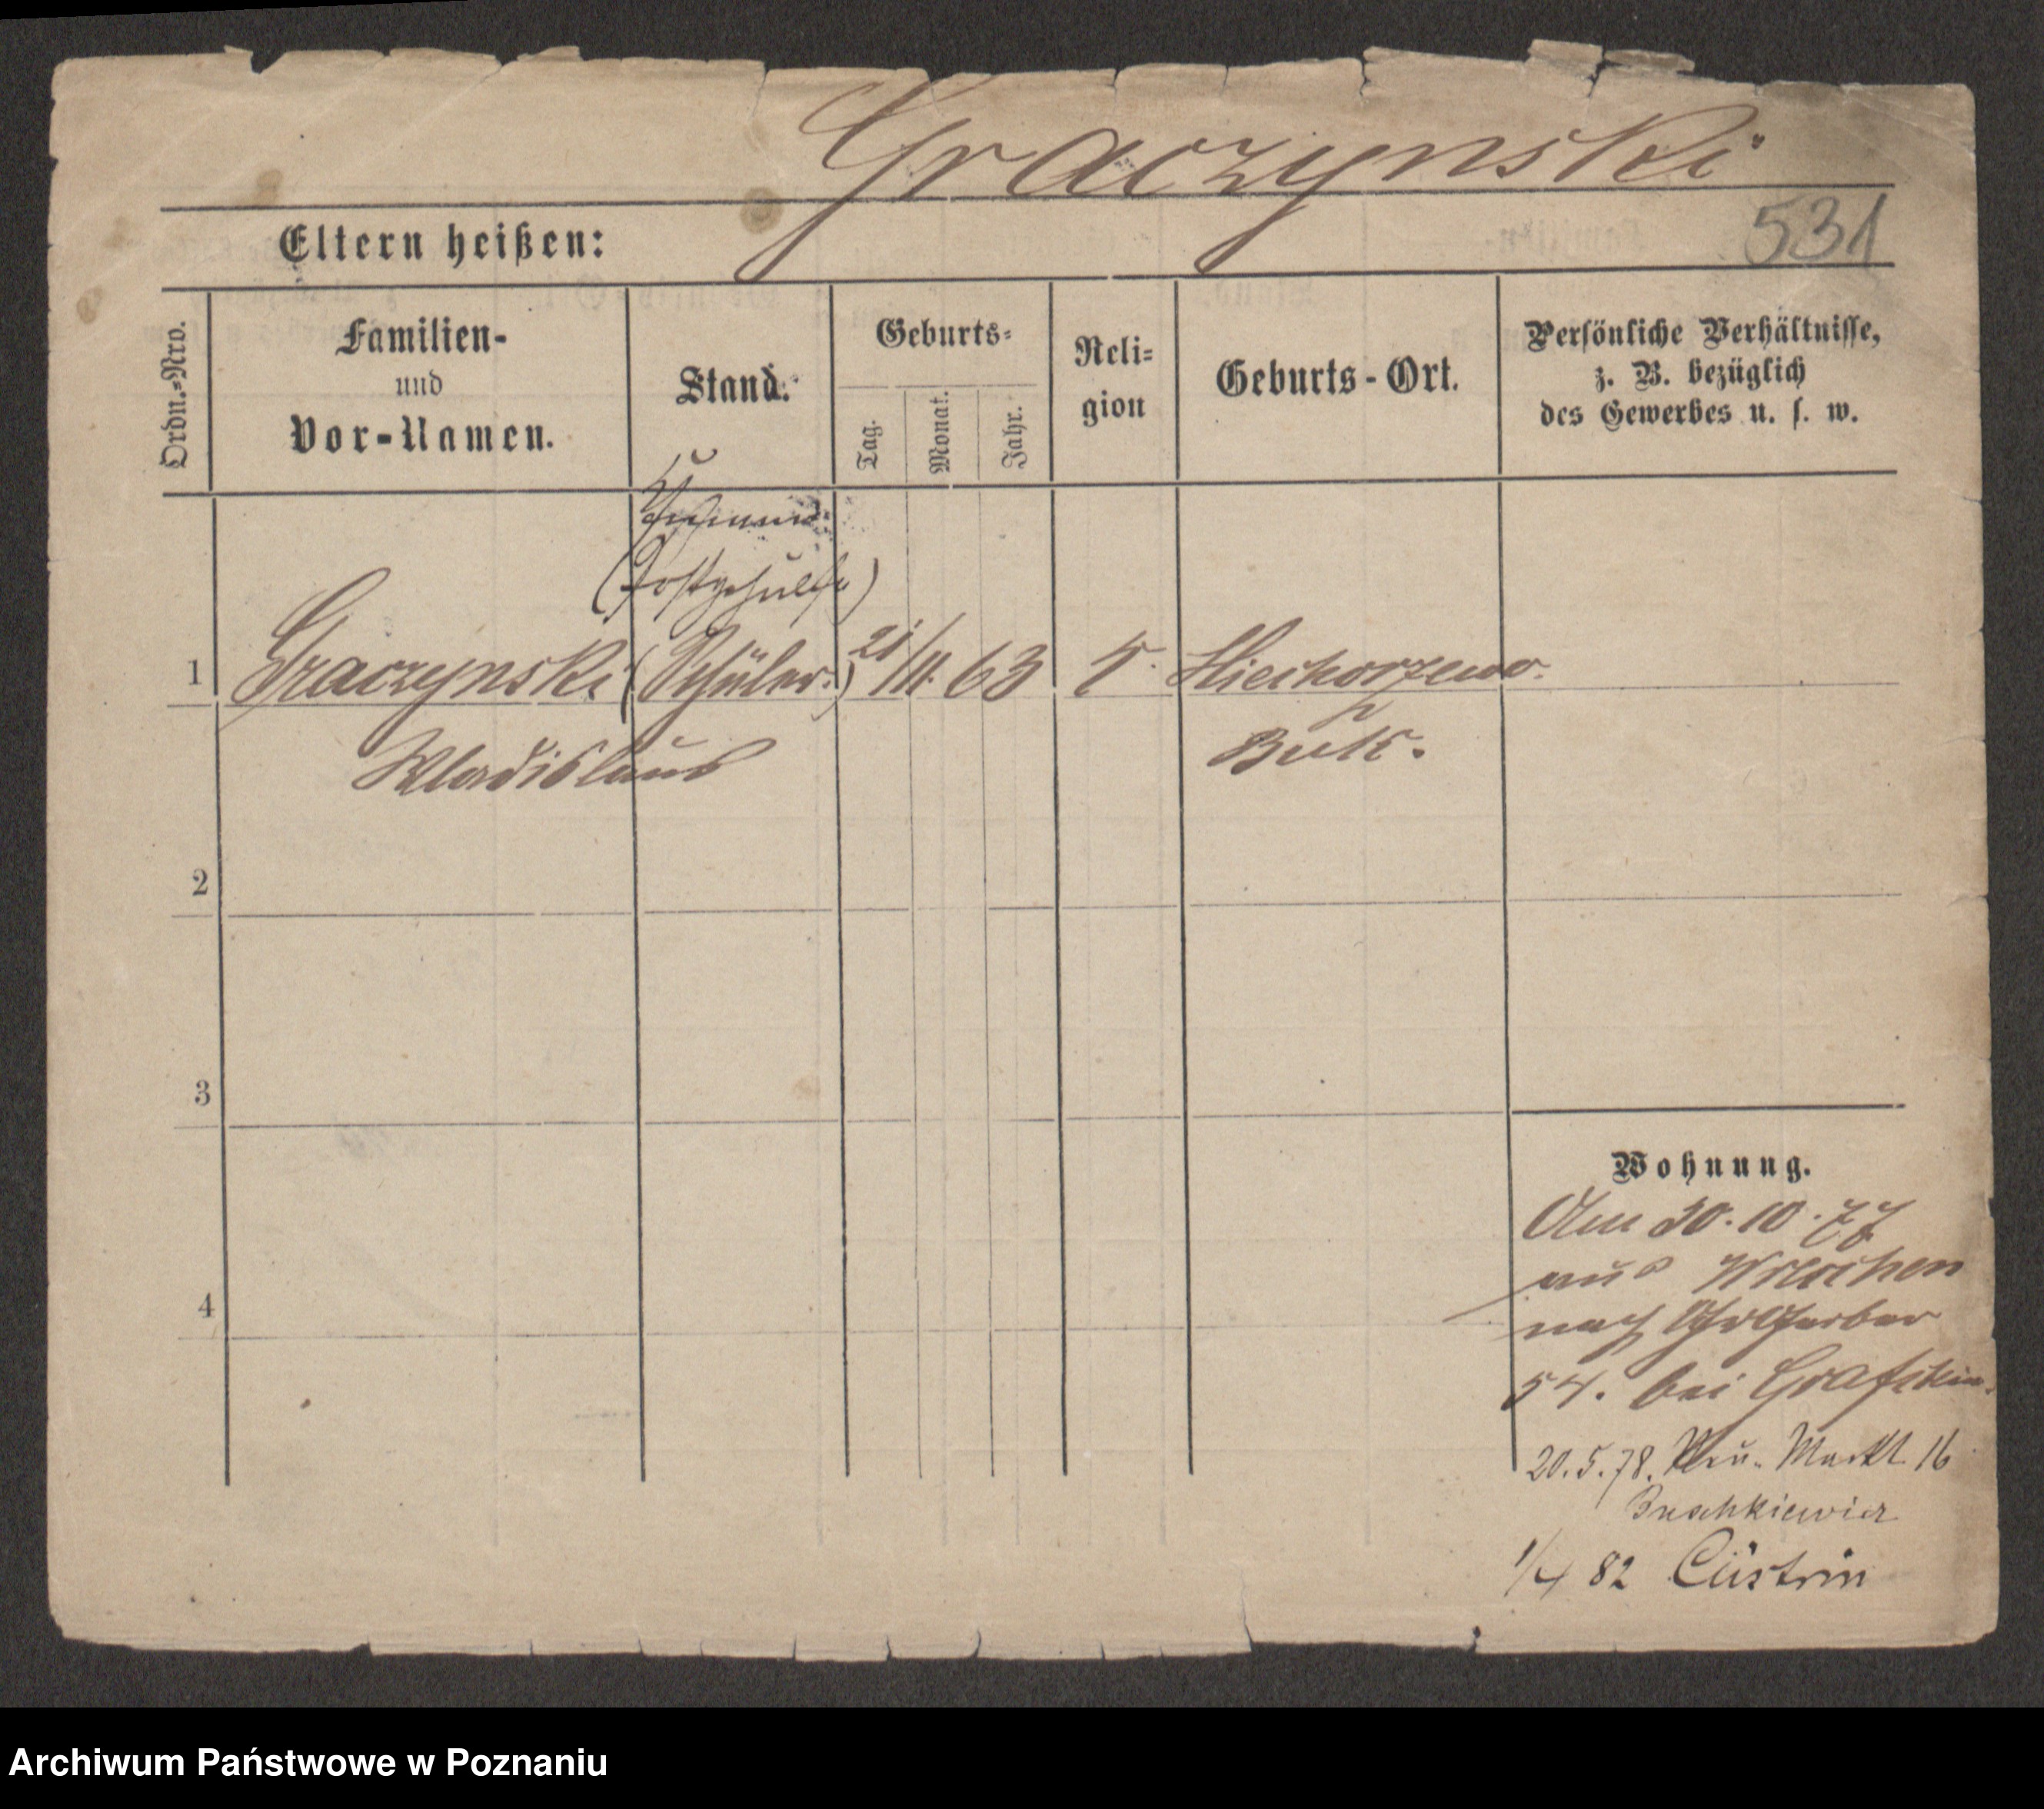 Graczynski
531
Eltern heißen:
Ordn.=Nro.
Familien-
und
Vor-Namen.
Stand.
Geburts=
Tag.
Monat.
Jahr.
Reli=
gion
Geburts-Ort.
Persönliche Verhältnisse,
z. B. bezüglich
des Gewerbes u. s. w.
(Postgehülfe)
1 Graczynski (Schüler.) 21/11. 63
Wladislaus
Buk.
2
3
4
Wohnung.
Am 30.10.77
aus Wreschen
nach Gr Gerber
54. bei
20.5.78. Neu. Markt 16
1/4 82 Cüstrin
Archiwum Państwowe w Poznaniu